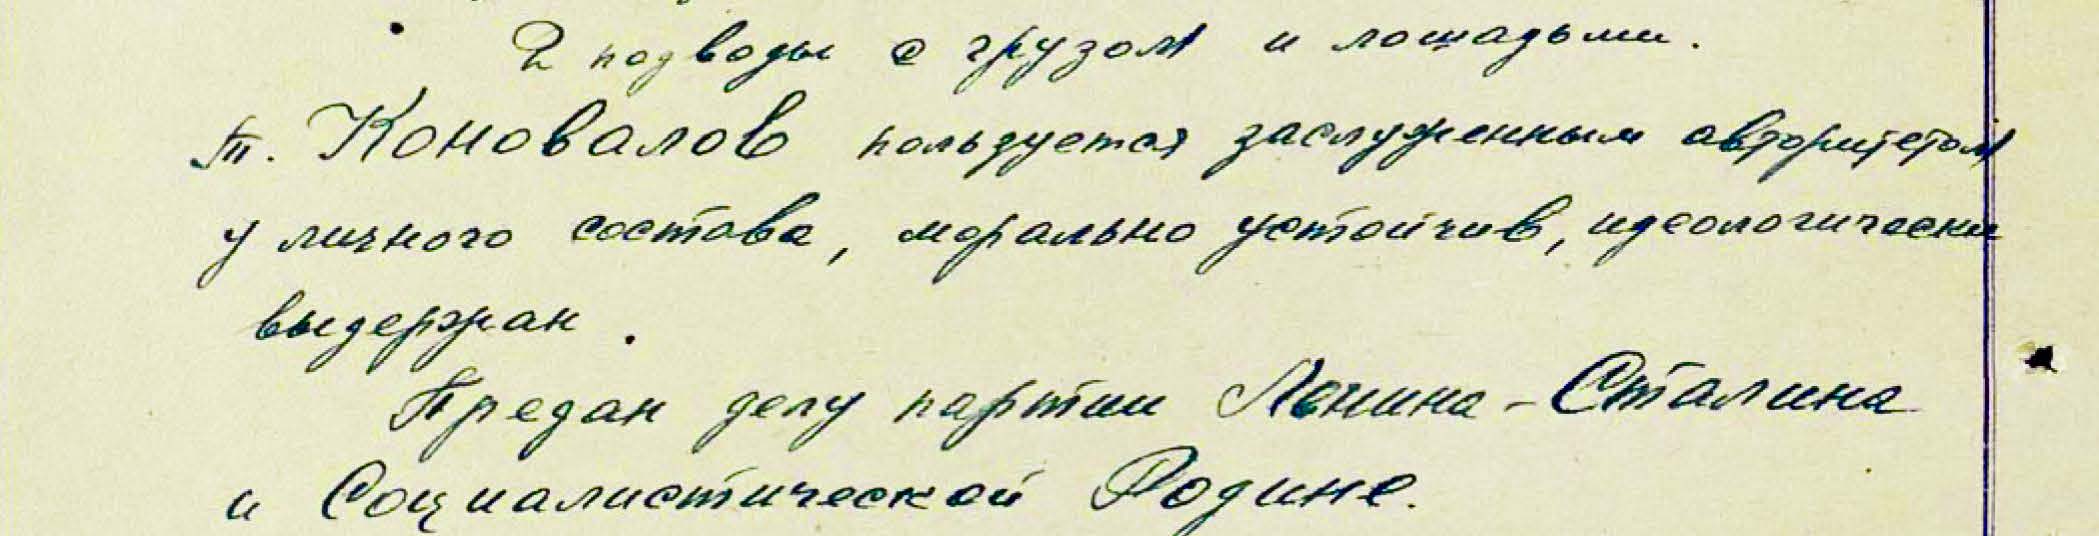 2 подводы с грузом и лошадьми.
т. Коновалов пользуется заслуженным авторитетом
у личного состава, морально устойчив, идеологически
выдержан.
Предан делу партии Ленина - Сталина
и Социалистической Родине.